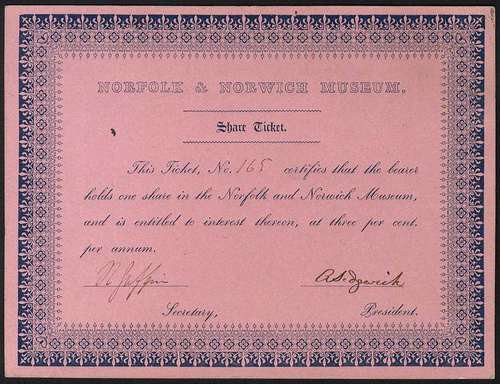 NORFOLK & NORWICH MUSEUM.
Share Ticket.
This Ticket, No. 165 certifies that the bearer
holds one share in the Norfolk and Norwich Museum,
and is entitled to interest thereon, at three per cent.
per annum.
A Sedgwick
Secretary, President.